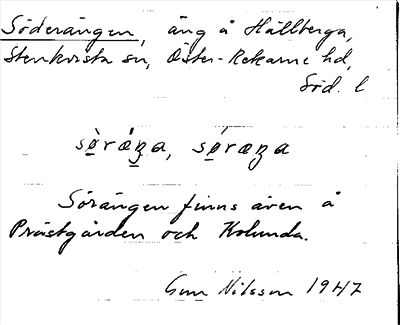 Söderängen, äng å Hällberga,
Stenkvista sn, Öster-Rekarne hd,
Söd. l
sø̀ráŋa, søræŋa
Sörängen finns även å
Prästgården och Kolunda.
Gun Nilsson 1947